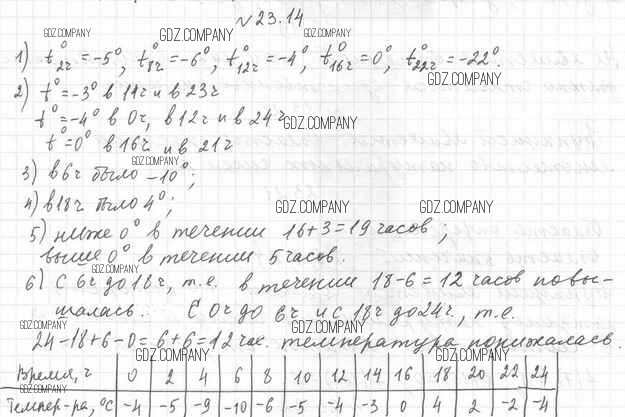 № 23.14
GDZ.COMPANY GDZ.COMPANY GDZ.COMPANY
1) t°2ч = -5°, t°8ч = -6°, t°12ч = -4°, t°16ч = 0°, t°22ч = -22°.
GDZ.COMPANY
2) t° = -3° в 11ч и в 23ч
t° = -4° в 0ч, в 12ч и в 24ч
GDZ.COMPANY
t° = 0° в 16ч и в 21ч
GDZ.COMPANY
3) в 6ч было -10°;
4) в 18ч было 4°;
GDZ.COMPANY GDZ.COMPANY
5) ниже 0° в течении 16+3=19 часов;
выше 0° в течении 5 часов.
GDZ.COMPANY
6) С 6ч до 18ч, т.е. в течении 18-6=12 часов повы-
шалась. С 0ч до 6ч и с 18ч до 24ч, т.е.
GDZ.COMPANY GDZ.COMPANY
24-18+6-0=6+6=12 час. температура понижалась.
GDZ.COMPANY GDZ.COMPANY
Время, ч 0 2 4 6 8 10 12 14 16 18 20 22 24
GDZ.COMPANY
Темпер-ра, °С -4 -5 -9 -10 -6 -5 -4 -3 0 4 2 -2 -4